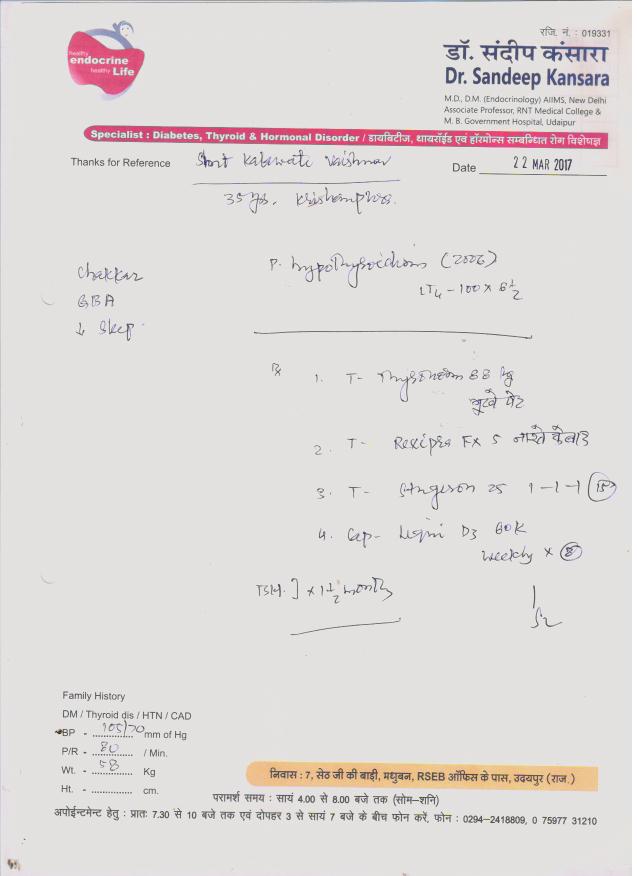 healthy
endocrine
healthy Life
रजि. नं. : 019331
डॉ. संदीप कंसारा
Dr. Sandeep Kansara
M.D., D.M. (Endocrinology) AIIMS, New Delhi
Associate Professor, RNT Medical College &
M. B. Government Hospital, Udaipur
Specialist : Diabetes, Thyroid & Hormonal Disorder / डायबिटीज, थायरॉईड एवं हॉरमोन्स सम्बन्धित रोग विशेषज्ञ
Thanks for Reference Smt Kalawati Vaishnav
Date 22 MAR 2017
35 ys.
Chakkar
GBA
↓ Sleep
P. hypothyroidism (2006)
LT4 - 100 x 6 1/2
Rx
1. T- 88 µg
2. T- FX 5 नाश्ते के बाद
3. T- 25 1-1-1
4. Cap- D3 60K
weekly x 8
TSH ] x 1 1/2 month
Family History
DM / Thyroid dis / HTN / CAD
BP - 105/70 mm of Hg
P/R - 80 / Min.
Wt. - 58 Kg
Ht. - .............. cm.
निवास : 7, सेठ जी की बाड़ी, मधुबन, RSEB ऑफिस के पास, उदयपुर (राज.)
परामर्श समय : सायं 4.00 से 8.00 बजे तक (सोम–शनि)
अपोईन्टमेन्ट हेतु : प्रातः 7.30 से 10 बजे तक एवं दोपहर 3 से सायं 7 बजे के बीच फोन करें, फोन : 0294–2418809, 0 75977 31210